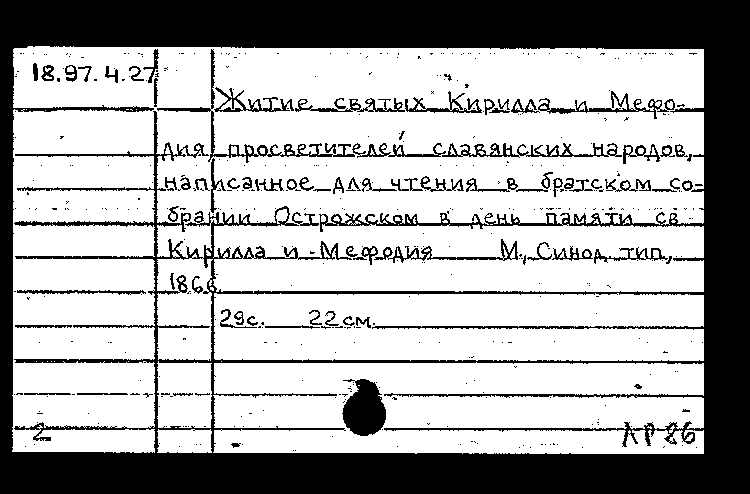 18.97.4.27
Житие святых Кирилла и Мефо-
дия, просветителей славянских народов,
написанное для чтения в братском со-
брании Острожском в день памяти св.
Кирилла и Мефодия М., Синод. тип.,
1866.
29с. 22см.
2 ЛР 86